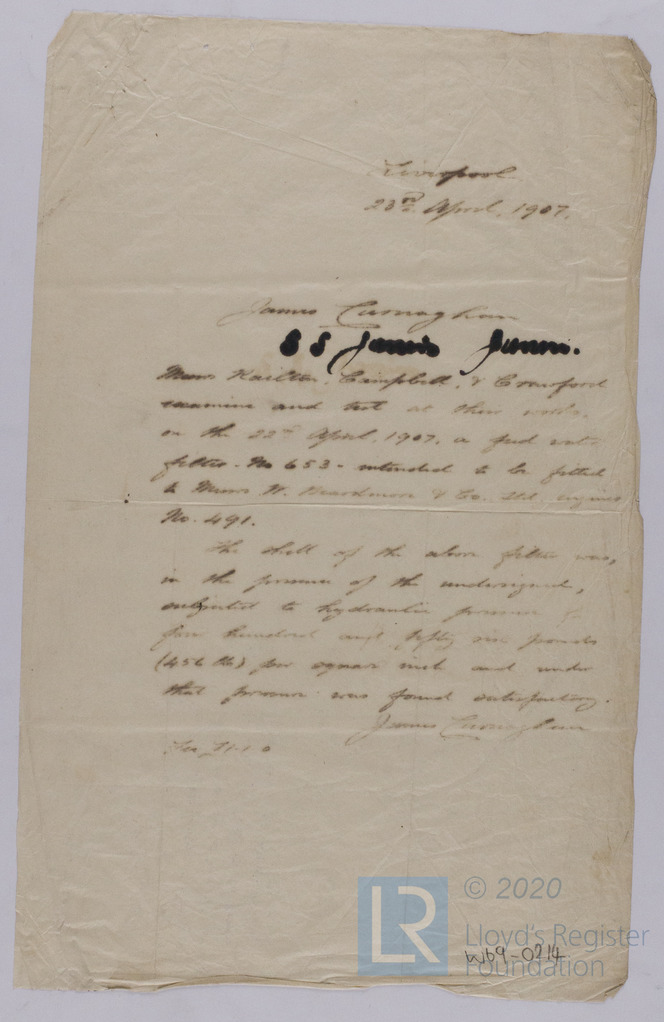 Liverpool
23rd April, 1907.
James Carnaghan
SS James
Messrs Railton, Campbell, & Crawford
examine and test at their works,
on the 22nd April, 1907, a feed water
filter - No 653 - intended to be fitted
to Messrs W. Beardmore & Co. Ltd. engines
No. 491.
The shell of the above filter was,
in the presence of the undersigned,
subjected to hydraulic pressure
four hundred and fifty six pounds
(456 lbs) per square inch and under
that pressure was found satisfactory.
James Carnaghan
Fee £1-1-0
LR
© 2020
Lloyd's Register
Foundation
W69-0214